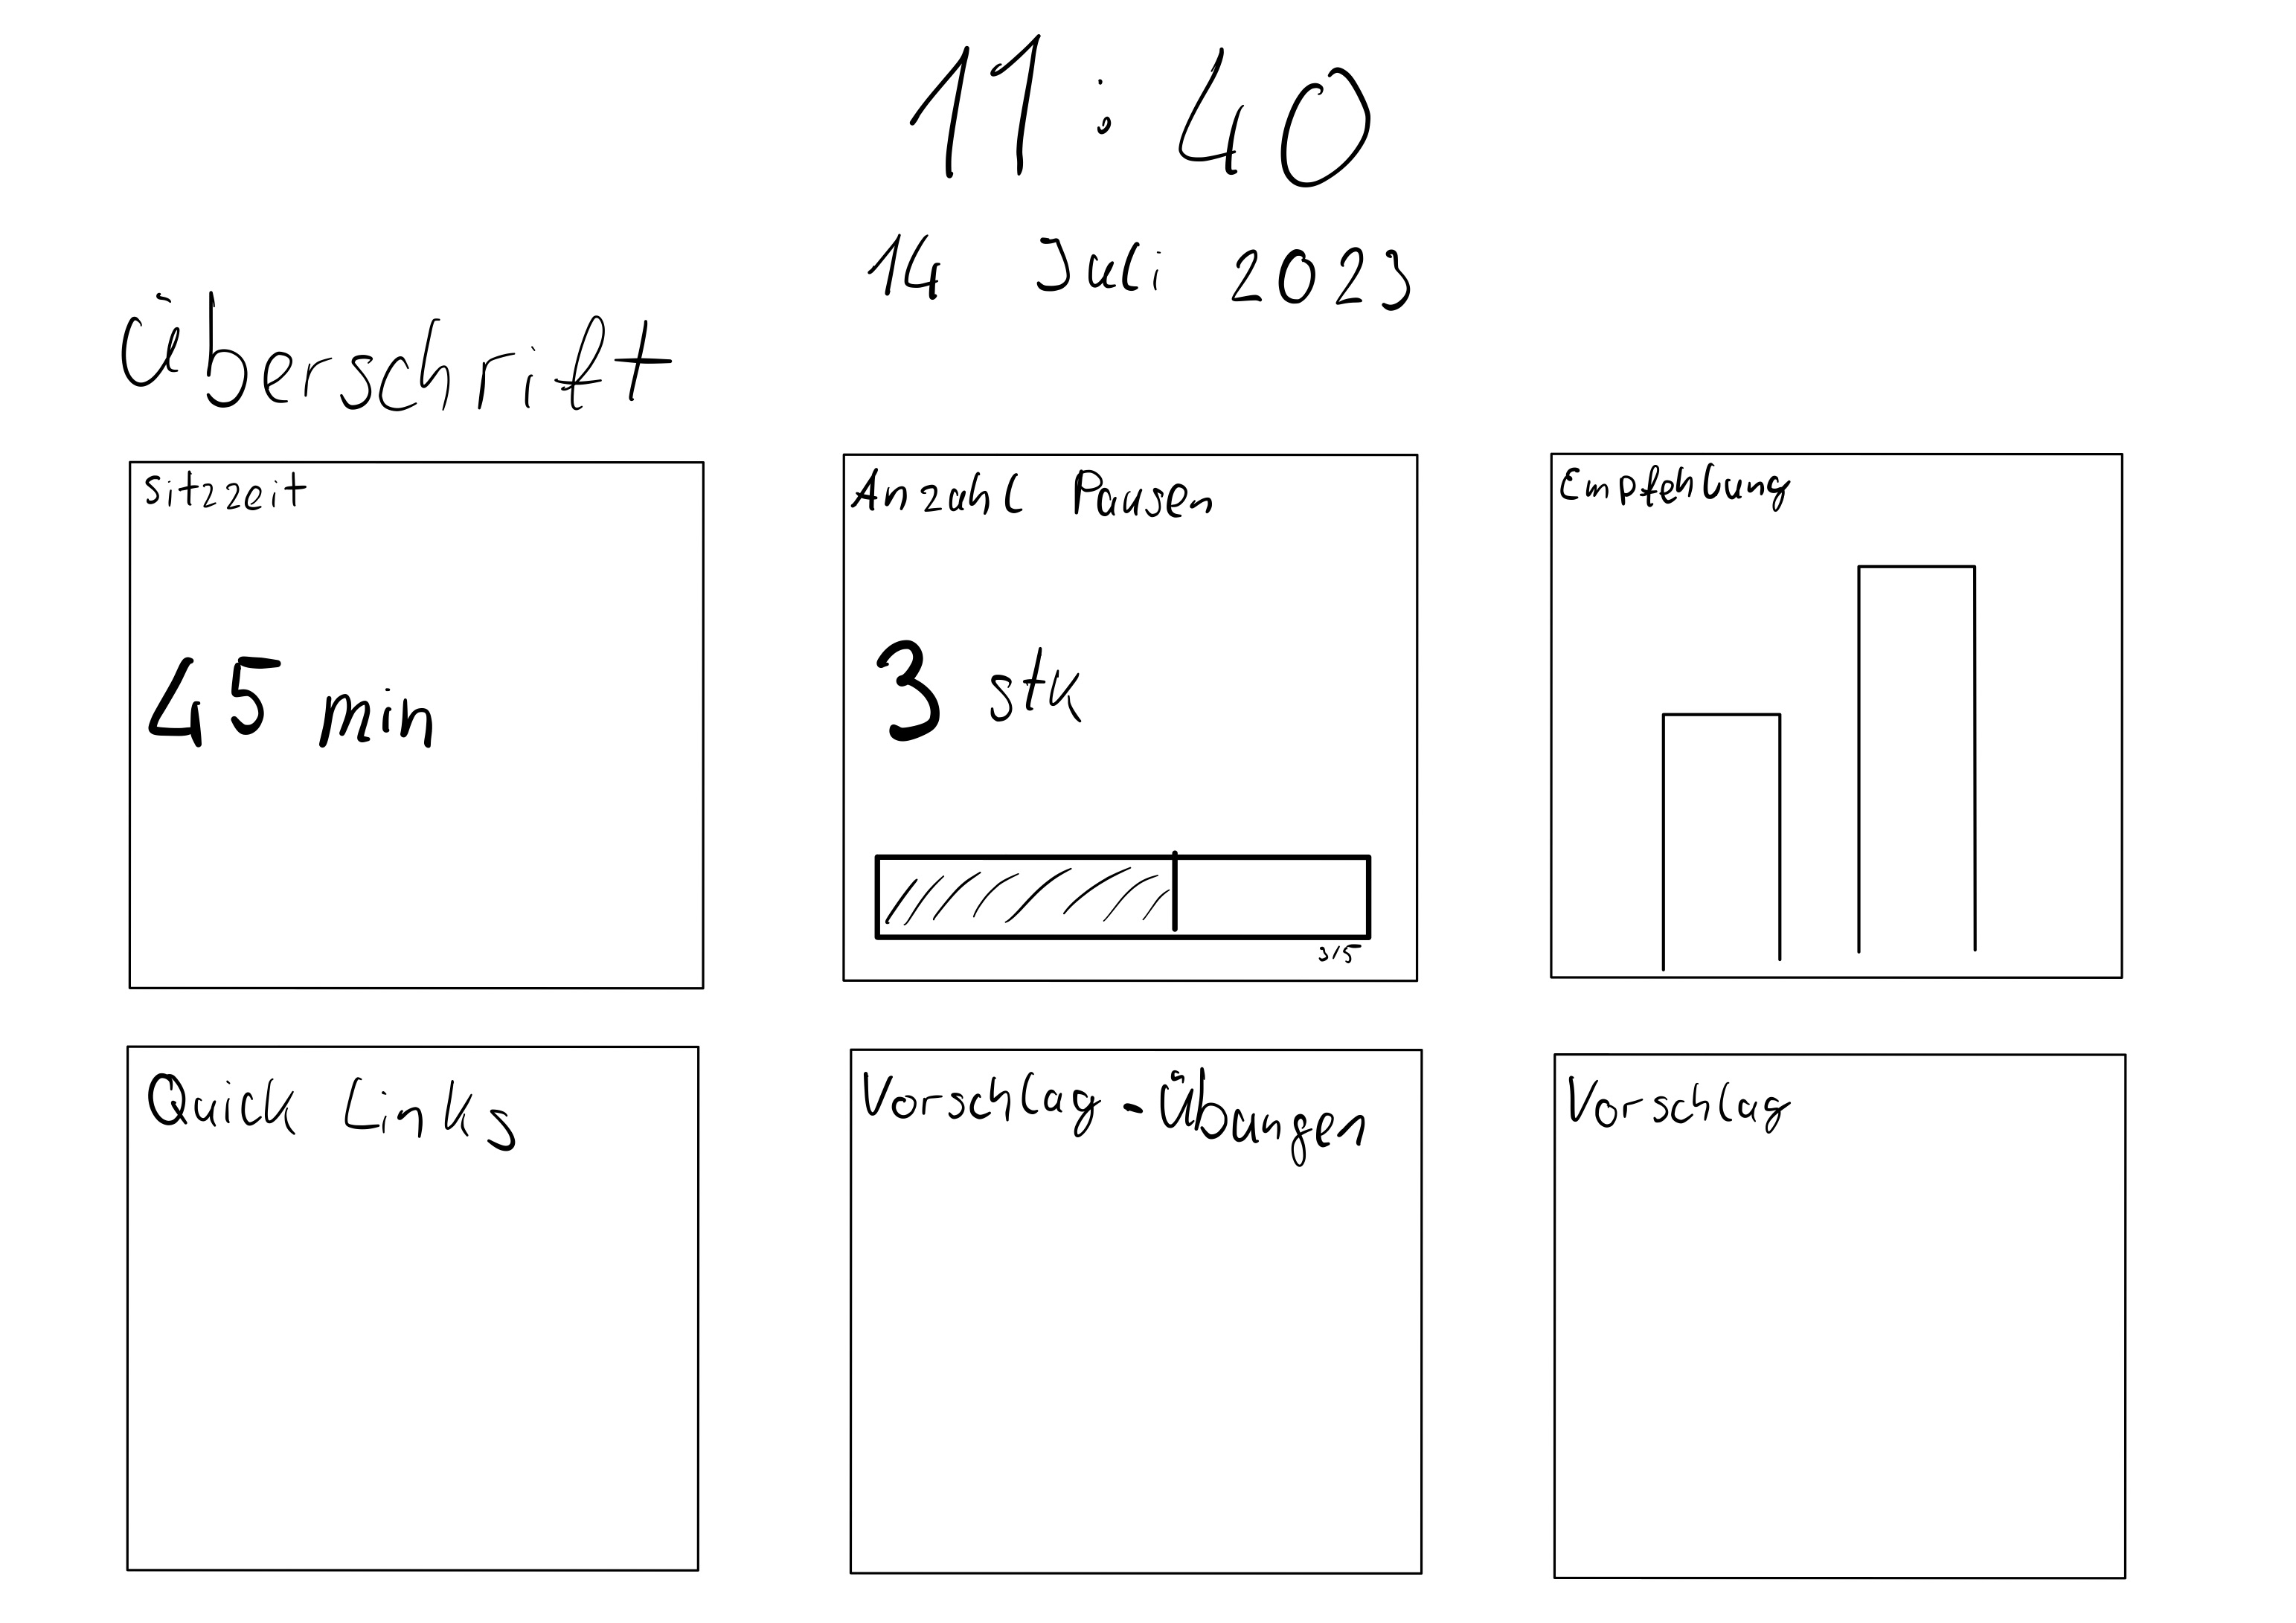 11:40
14 Juli 2023
Überschrift
Sitzzeit
45 min
Anzahl Pausen
3 stk
3/5
Empfehlung
Quick Links
Vorschlag-Übungen
Vorschlag